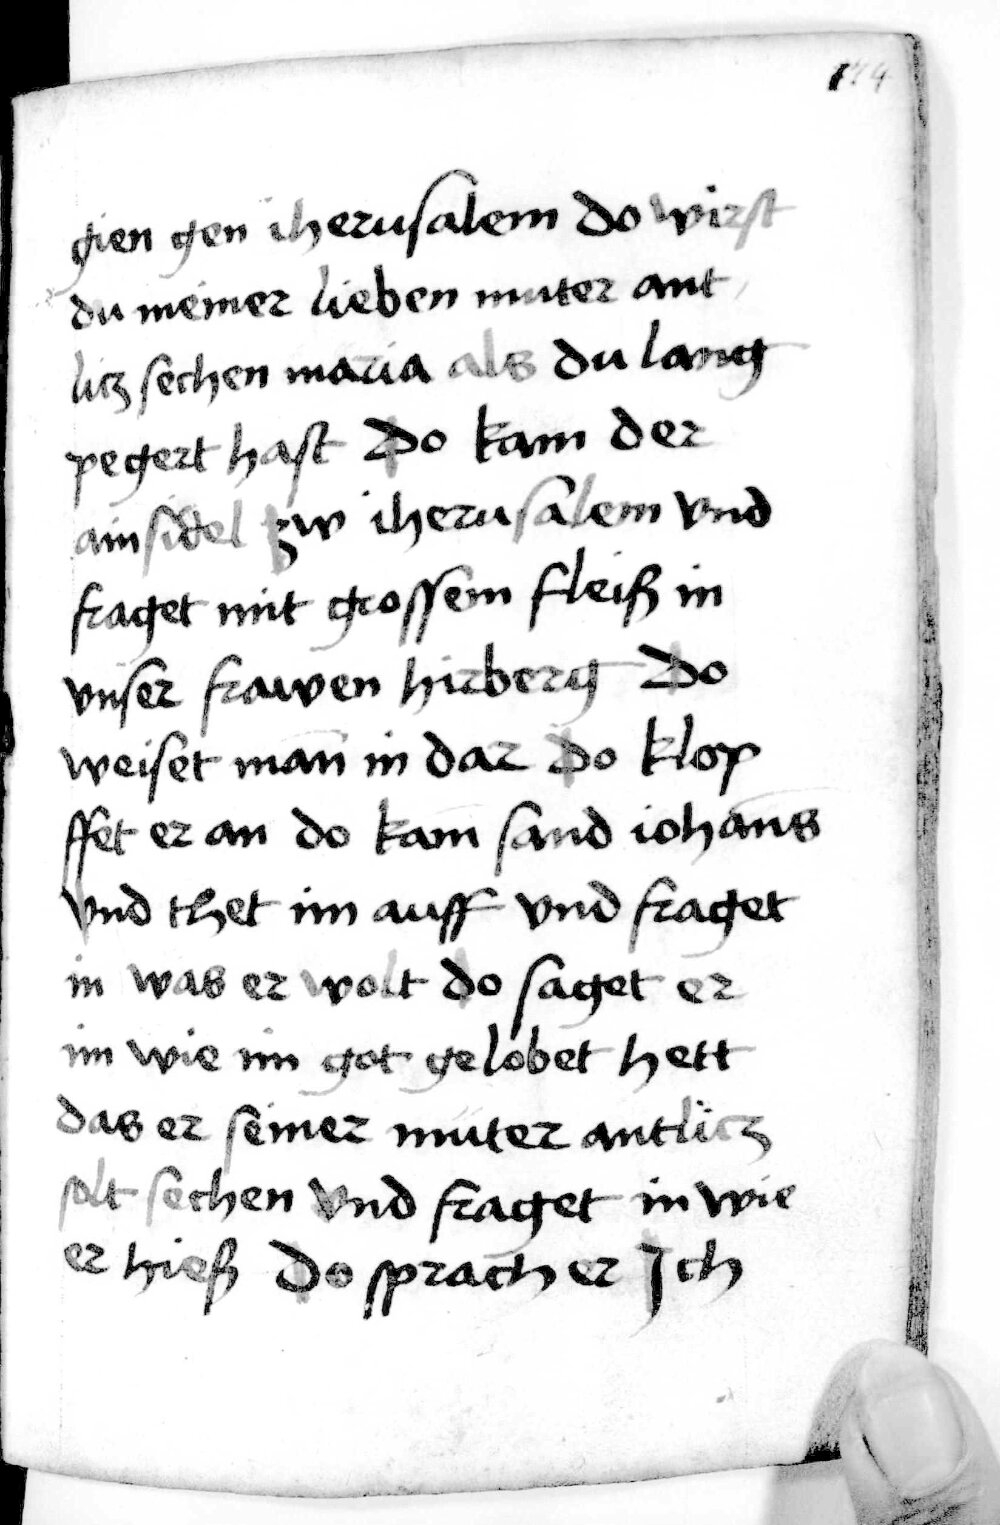 174
gien gen iherusalem do wirst
du meiner lieben muter ant
licz sechen maria als du lang
pegert hast Do kam der
ainsidel zw iherusalem vnd
fraget mit grossem fleiß in
vnser frawen hirberg Do
weiset man in dar do klop
ffet er an do kam sand iohans
vnd thet im auff vnd fraget
in was er wolt do saget er
im wie im got gelobet hett
das er seiner muter antlicz
solt sechen vnd fraget in wie
er hieß Do sprach er Ich